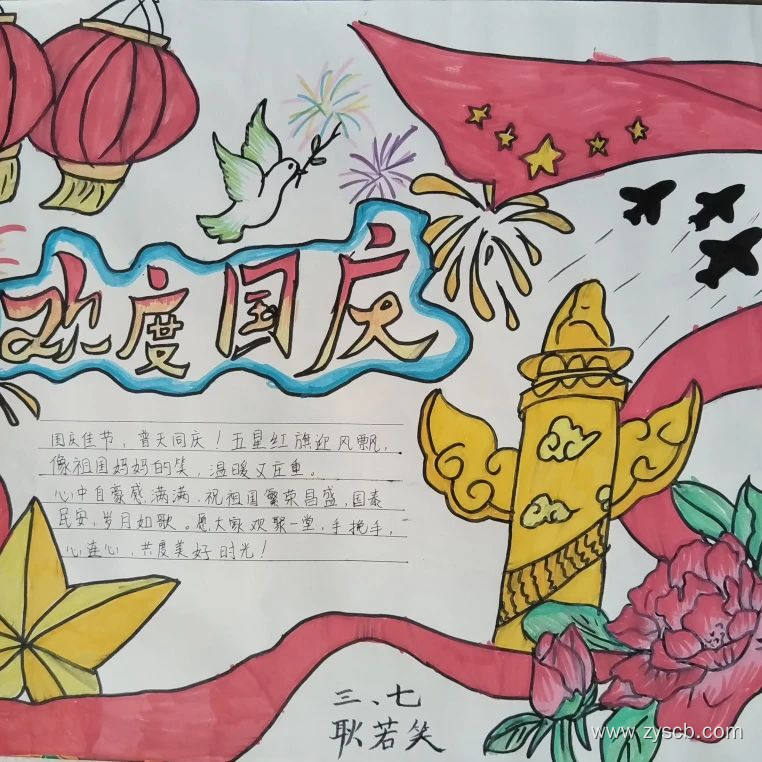 欢度国庆
国庆佳节，普天同庆！五星红旗迎风飘，
像祖国妈妈的笑，温暖又庄重。
心中自豪感满满，祝祖国繁荣昌盛，国泰
民安，岁月如歌。愿大家欢聚一堂，手挽手，
心连心，共度美好时光！
三、七
耿若笑
www.zyscb.com